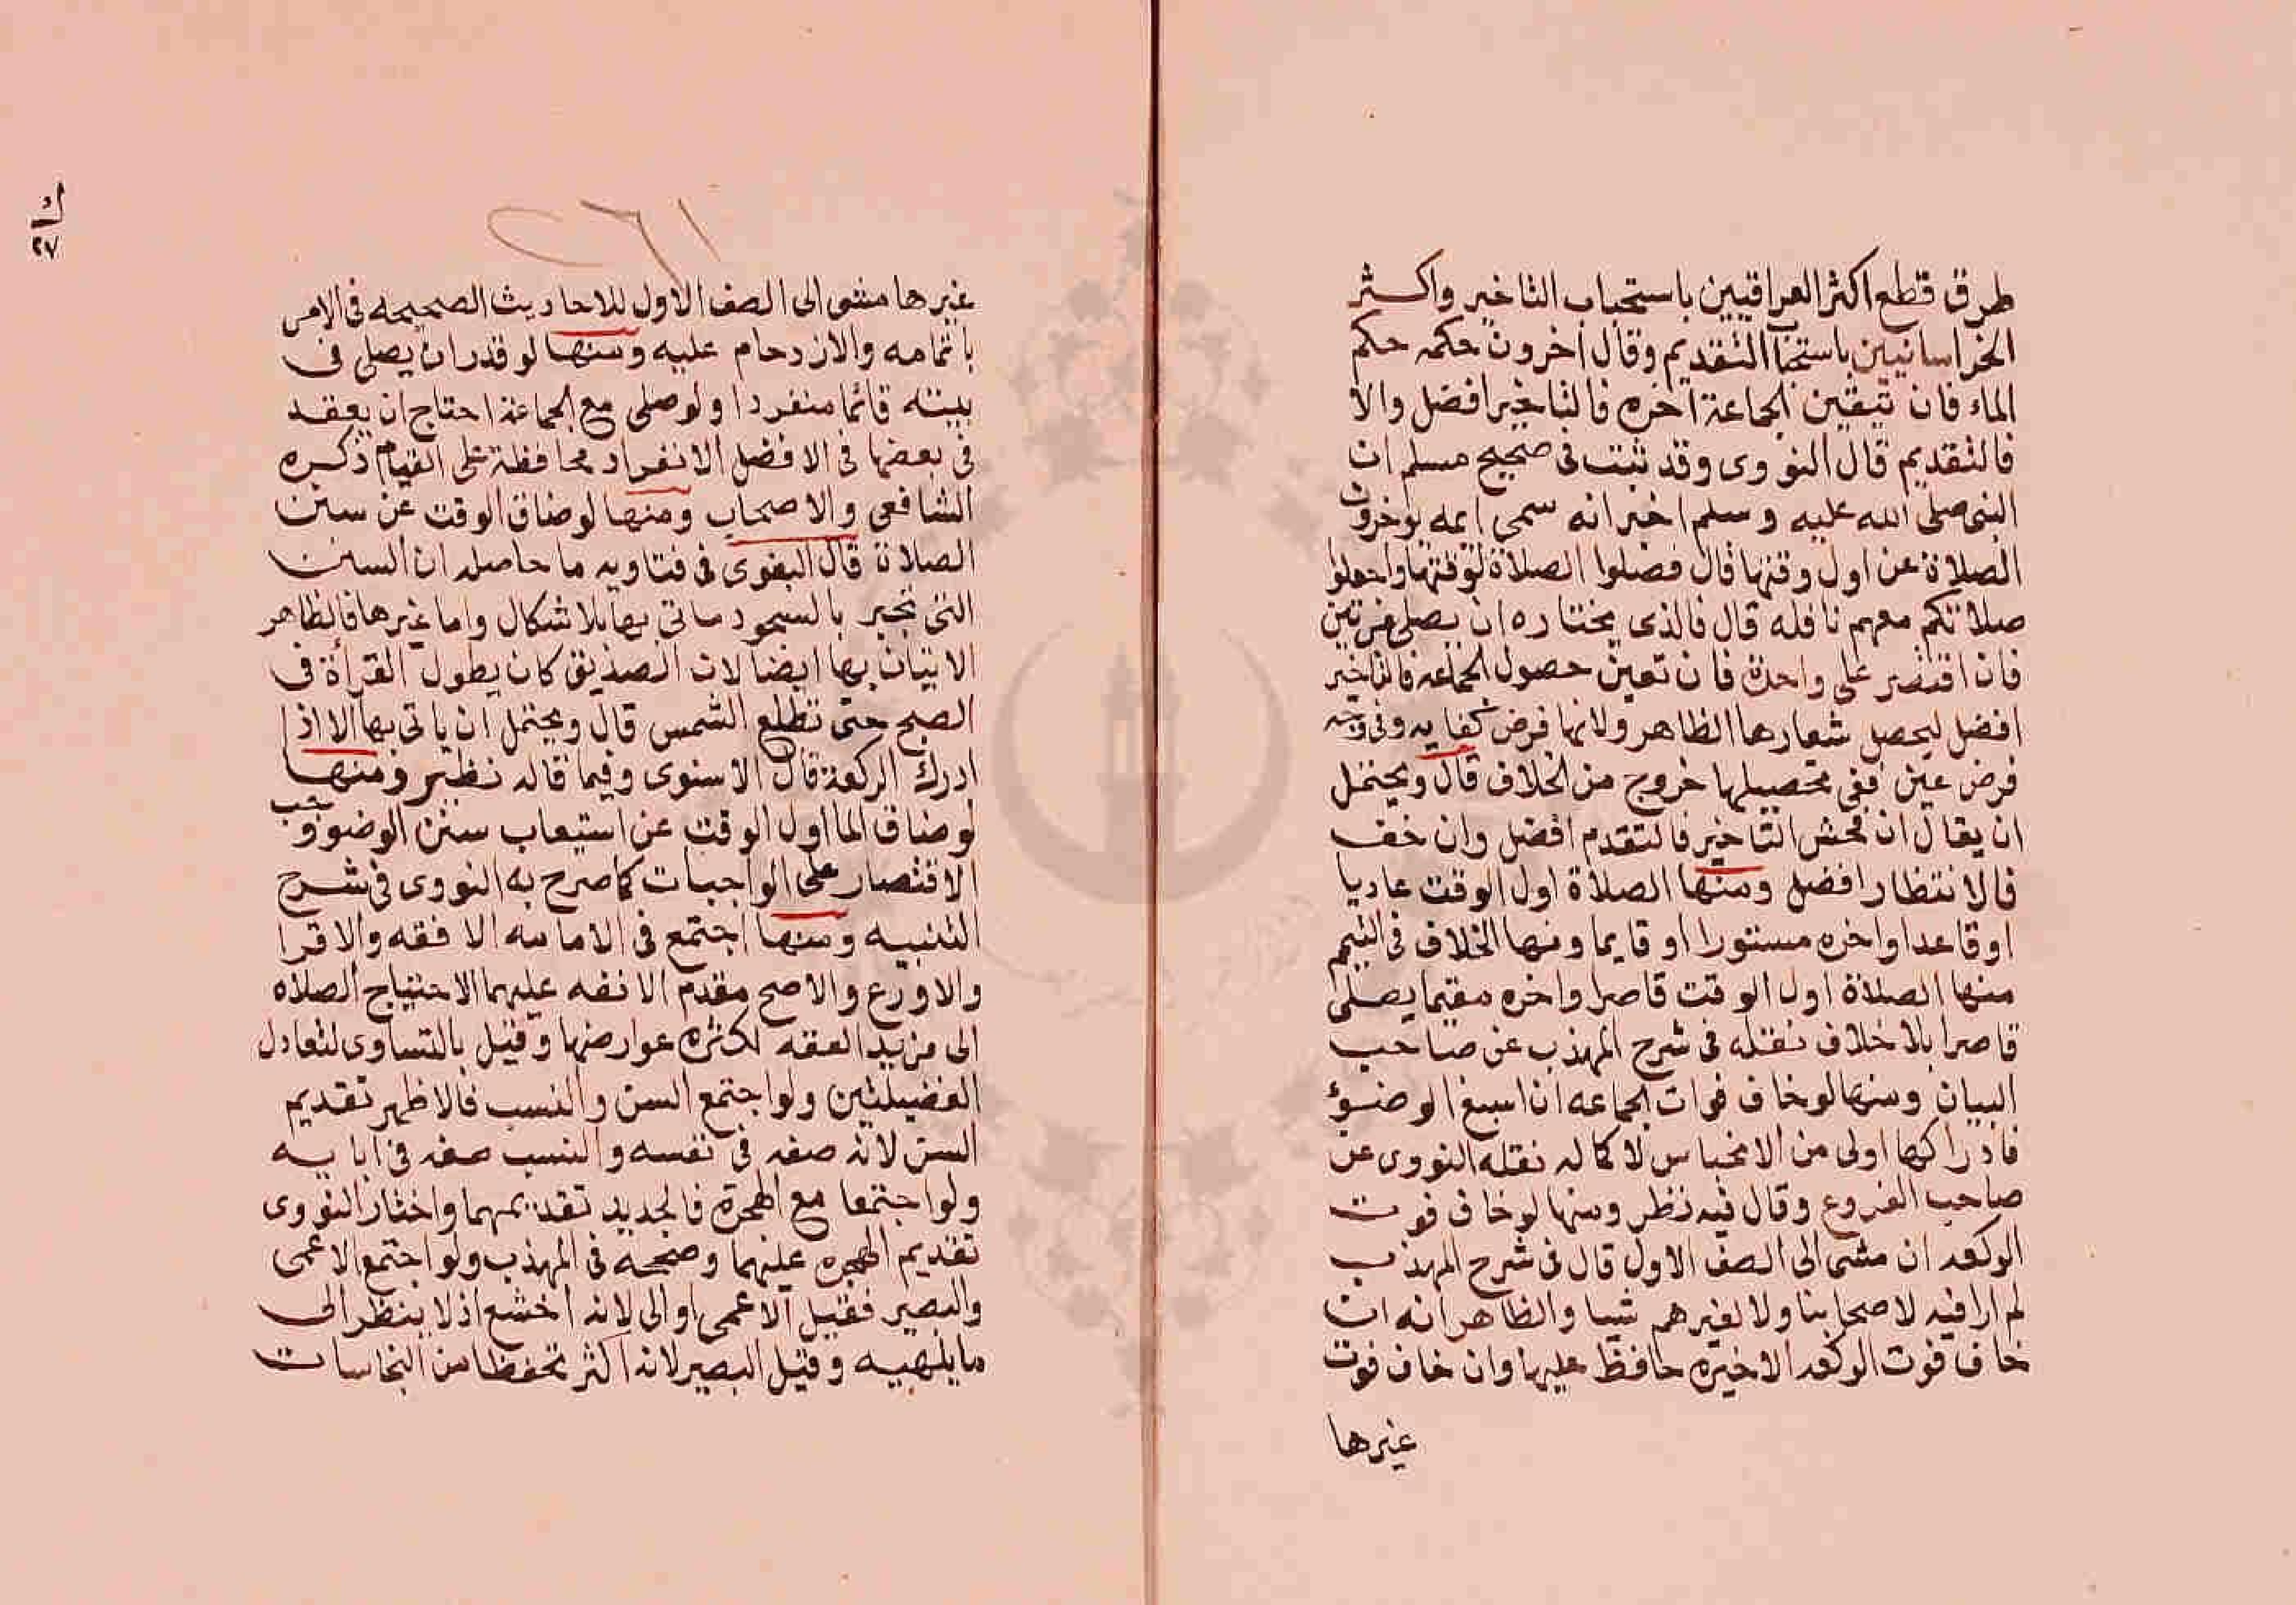 طرق قطع اكثر العراقيين باستحباب التاخير واكثر
الخراسانيين باستحباب التقديم وقال اخرون حكمه حكم
الماء فان تيقين الجماعة اخره فالتاخير افضل والا
فالتقديم قال النووى وقد ثبت فى صحيح مسلم ان
النبى صلى الله عليه وسلم اخبر انه سمى ايمه يوخرون
الصلاة عن اول وقتها قال فصلوا الصلاة لوقتها واجعلوا
صلاتكم معهم نافله قال فالذى يختاره ان يصلى مرتين
فان اقتصر على واحدة فان تعين حصول الجماعه فالتاخير
افضل ليحصل شعارها الظاهر ولانها فرض كفايه وفى وجه
فرض عين ففى تحصيلها خروج من الخلاف قال ويحتمل
ان يقال ان فحش التاخير فالتقدم افضل وان خف
فالانتظار افضل ومنها الصلاة اول الوقت عاديا
او قاعدا واخره مستورا او قايما ومنها الخلاف فى التيمم
منها الصلاة اول الوقت قاصرا واخره مقيما يصلى
قاصرا بلا خلاف نقله فى شرح المهذب عن صاحب
البيان ومنها لو خاف فوات الجماعه ان اسبغ الوضوء
فادراكها اولى من الانحباس لاكماله نقله النووى عن
صاحب الفروع وقال فيه نظر ومنها لو خاف فوت
الركعه ان مشى الى الصف الاول قال فى شرح المهذب
لم ار فيه لاصحابنا ولا لغيرهم شيا والظاهر انه ان
خاف فوت الركعه الاخيره حافظ عليها وان خاف فوت
غيرها
٢٦١
ك
٢٧
غيرها مشى الى الصف الاول للاحاديث الصحيحه فى الامر
باتمامه والازدحام عليه ومنها لو قدر ان يصلى فى
بيته قائما منفردا ولو صلى مع الجماعة احتاج ان يعقد
فى بعضها فى الافضل الانفراد محافظة على القيام ذكره
الشافعى والاصحاب ومنها لو ضاق الوقت عن سنن
الصلاة قال البغوى فى فتاويه ما حاصله ان السنن
التى تجبر بالسجود ماتى بها بلا اشكال واما غيرها فالظاهر
الاتيان بها ايضا لان الصديق كان يطول القرأة فى
الصبح حتى تطلع الشمس قال ويحتمل ان ياتى بها الا اذا
ادرك الركعة قال الاسنوى وفيما قاله نظير ومنها
لو ضاق الما اول الوقت عن استيعاب سنن الوضو وجب
الاقتصار على الواجبات كما صرح به النووى فى شرح
التنبيه ومنها اجتمع فى الامامه الافقه والاقرا
والاورع والاصح مقدم الافقه عليهما الاحتياج الصلاه
الى مزيد الفقه لكثره عوارضها وقيل بالتساوى لتعادل
الفضيلتين ولو اجتمع السن والنسب فالاظهر تقديم
السن لانه صفه فى نفسه والنسب صفه فى ابايه
ولو اجتمعا مع الهجرة فالجديد تقديمهما واختار النووى
تقديم الهجره عليهما وصححه فى المهذب ولو اجتمع الاعمى
والبصير فقيل الاعمى اوالى لانه اخشع اذ لا ينظر الى
ما يلهيه وقيل البصير لانه اكثر تحفظا من النجاسات